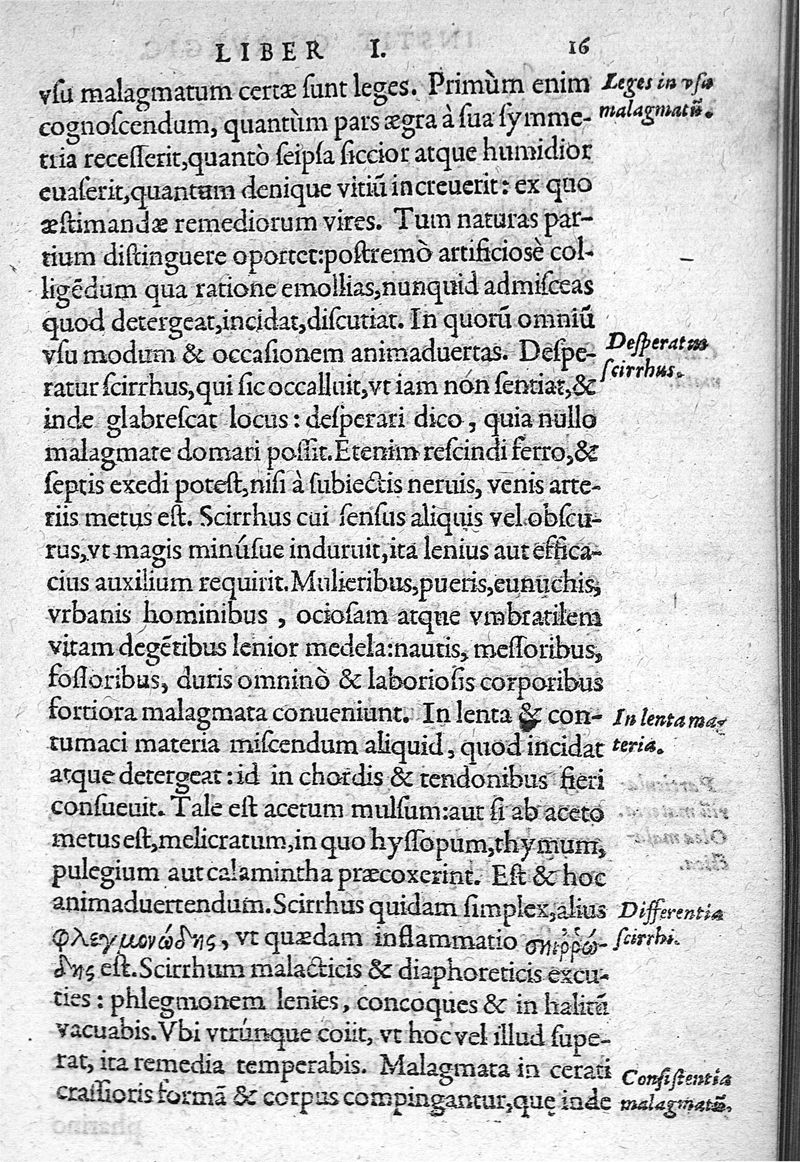 LIBER I. 16
vſu malagmatum certæ ſunt leges. Primùm enim
Leges in vſu
cognoſcendum, quantùm pars ægra à ſua ſymme-
malagmatū.
tria receſſerit,quantò ſeipſa ſiccior atque humidior
euaſerit,quantum denique vitiū increuerit: ex quo
æſtimandæ remediorum vires. Tum naturas par-
tium diſtinguere oportet:poſtremò artificioſè col-
ligēdum qua ratione emollias,nunquid admiſceas
quod detergeat,incidat,diſcutiat. In quorū omniū
vſu modum & occaſionem animaduertas. Deſpe-
Deſperatus
ratur ſcirrhus,qui ſic occalluit,vt iam non ſentiat,&
ſcirrhus.
inde glabreſcat locus: deſperari dico, quia nullo
malagmate domari poſſit.Etenim reſcindi ferro,&
ſeptis exedi poteſt,niſi à ſubiectis neruis, venis arte-
riis metus eſt. Scirrhus cui ſenſus aliquis vel obſcu-
rus,vt magis minúſue induruit,ita lenius aut effica-
cius auxilium requirit.Mulieribus,pueris,eunuchis,
vrbanis hominibus, ocioſam atque vmbratilem
vitam degētibus lenior medela:nautis, meſſoribus,
foſſoribus, duris omninò & laborioſis corporibus
fortiora malagmata conueniunt. In lenta & con-
In lenta ma-
tumaci materia miſcendum aliquid, quod incidat
teria.
atque detergeat: id in chordis & tendonibus fieri
conſueuit. Tale eſt acetum mulſum:aut ſi ab aceto
metus eſt,melicratum,in quo hyſſopum,thymum,
pulegium aut calamintha præcoxerint. Eſt & hoc
animaduertendum.Scirrhus quidam ſimplex,alius
Differentia
φλεγμονώδης, vt quædam inflammatio σκιῤῥώ-
ſcirrhi.
δης eſt.Scirrhum malacticis & diaphoreticis excu-
ties: phlegmonem lenies, concoques & in halitū
vacuabis.Vbi vtrúnque coiit, vt hoc vel illud ſupe-
rat, ita remedia temperabis. Malagmata in cerati
Conſiſtentia
craſſioris formā & corpus compingantur,quę inde
malagmatū.